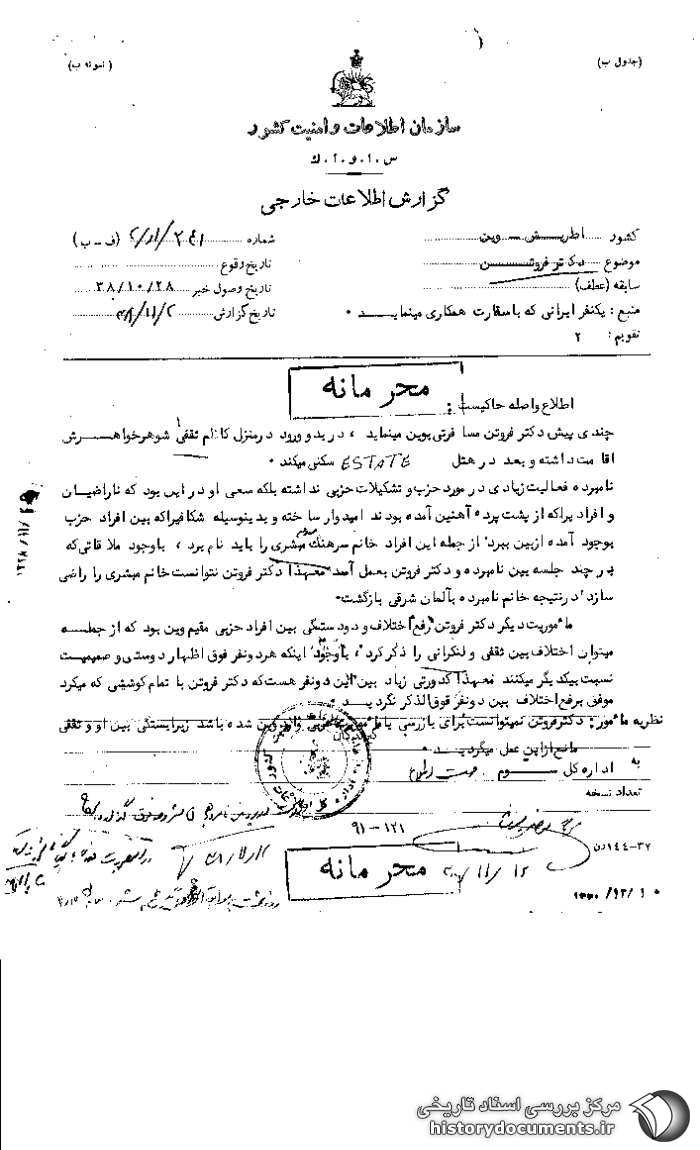 (جدول ب)
( نمونه ب)
سازمان اطلاعات و امنیت کشور
س . ا . و . ا . ك
گزارش اطلاعات خارجی
کشور اطریش - وین
شماره ۲۴۱ (ف - ب)
موضوع دکتر فروتن
تاریخ وقوع
سابقه (عطف)
تاریخ وصول خبر ۳۸/۱۰/۲۸
منبع : یکنفر ایرانی که با سفارت همکاری مینماید .
تاریخ گزارش ۳۸/۱۱/۲
تقویم : ۲
محرمانه
اطلاع واصله حاکیست :
چندی پیش دکتر فروتن مسافرتی بوین مینماید ، در بدو ورود در منزل کاظم ثقفی شوهر خواهرش
اقامت داشته و بعد در هتل ESTATE سکنی میکند .
نامبرده فعالیت زیادی در مورد حزب و تشکیلات حزبی نداشته بلکه سعی او در این بود که ناراضیان
و افراد یراکه از پشت پرده آهنین آمده بودند امیدوار ساخته و بدینوسیله شکافیراکه بین افراد حزب
بوجود آمده ازبین ببرد . از جمله این افراد خانم سرهنگ مبشری را باید نام برد ، باوجود ملاقاتی که
در چند جلسه بین نامبرده و دکتر فروتن بعمل آمد معهذا دکتر فروتن نتوانست خانم مبشری را راضی
سازد در نتیجه خانم نامبرده بآلمان شرقی بازگشت .
مأموریت دیگر دکتر فروتن رفع اختلاف و دودستگی بین افراد حزبی مقیم وین بود که از جمله
میتوان اختلاف بین ثقفی و لنکرانی را ذکر کرد ، باوجود اینکه هر دو نفر فوق اظهار دوستی و صمیمیت
نسبت بیکدیگر میکنند معهذا کدورتی زیاد بین این دو نفر هست که دکتر فروتن با تمام کوششی که میکرد
موفق برفع اختلاف بین دو نفر فوق الذکر نگردید .
نظریه مأمور : دکتر فروتن نمیتوانست برای بازرسی یا مأموریت وارد وین شده باشد زیرا بستگی بین او و ثقفی
مانع از این عمل میگردید .
به اداره کل سوم جهت اطلاع
تعداد نسخه
۹۱-۱۲۱
۳۷-۱۴۴ن
محرمانه
۱۱/۱۲
مرکز بررسی اسناد تاریخی
historydocuments.ir